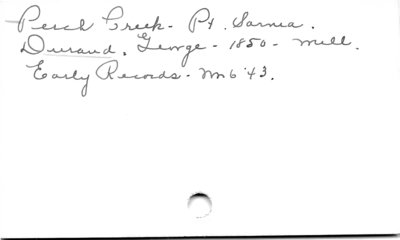 Perch Creek - Pt. Sarnia.
Durand, George - 1850 - mill.
Early Records - M6 '43.